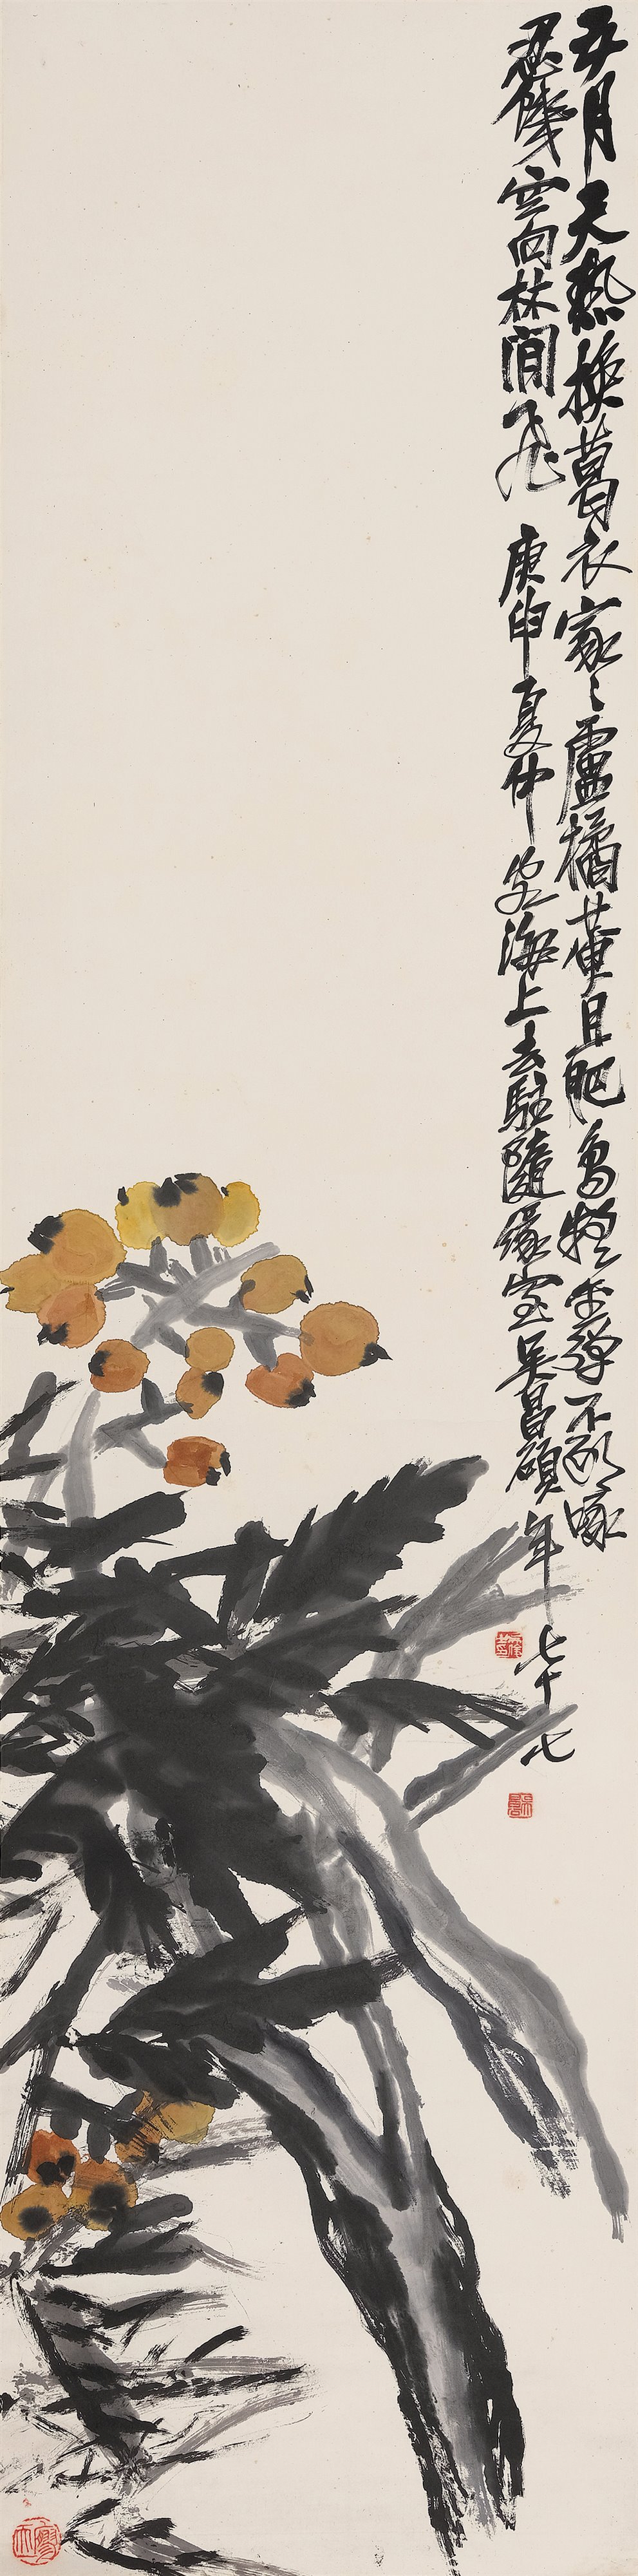 五月天熱換葛衣家〻盧橘黃且肥鳥疑金彈不敢啄
忍饑空向林間飛 庚申夏仲客海上去駐隨緣室吳昌碩年七十七